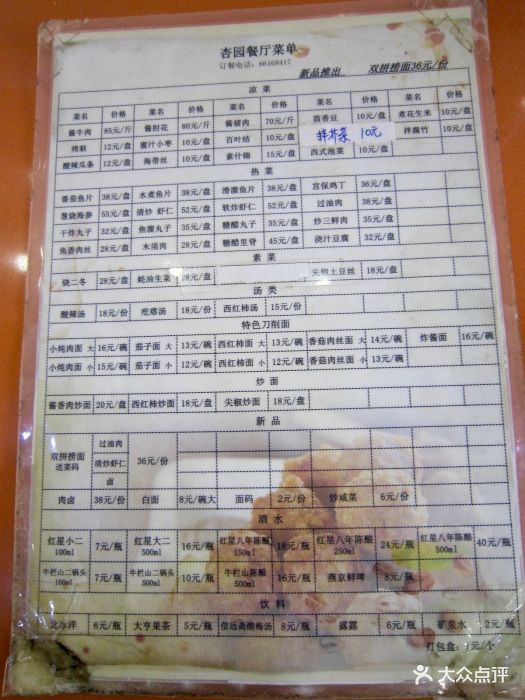 杏园餐厅菜单
订餐电话：66168417
新品推出 双拼捞面36元/份
凉菜
菜名 价格 菜名 价格 菜名 价格 菜名 价格 菜名 价格
酱牛肉 85元/斤 酱肘花 80元/斤 酱猪肉 70元/斤 茴香豆 10元/盘 煮花生米 10元/盘
烤麸 12元/盘 蜜汁小枣 10元/盘 百叶结 10元/盘 拌芥菜 10元 拌腐竹 10元/盘
酸辣瓜条 12元/盘 海带丝 10元/盘 素什锦 15元/盘 西式泡菜 10元/盘
热菜
番茄鱼片 38元/盘 水煮鱼片 38元/盘 滑溜鱼片 38元/盘 宫保鸡丁 36元/盘
葱烧海参 55元/盘 清炒 虾仁 52元/盘 软炸虾仁 52元/盘 过油肉 38元/盘
干炸丸子 32元/盘 焦溜丸子 35元/盘 糖醋丸子 35元/盘 炒三鲜肉 35元/盘
鱼香肉丝 28元/盘 木须肉 28元/盘 糖醋里脊 45元/盘 浇汁豆腐 32元/盘
素菜
烧二冬 28元/盘 蚝油生菜 28元/盘 尖椒土豆丝 18元/盘
汤类
酸辣汤 18元/份 疙瘩汤 18元/份 西红柿汤 15元/份
特色刀削面
小炖肉面 大 16元/碗 茄子面 大 13元/碗 西红柿面 大 13元/碗 香菇肉丝面 大 14元/碗 炸酱面 16元/碗
小炖肉面 小 15元/碗 茄子面 小 12元/碗 西红柿面 小 12元/碗 香菇肉丝面 小 13元/碗
炒面
酱香肉炒面 20元/盘 西红柿炒面 18元/盘 尖椒炒面 18元/盘
新品
双拼捞面送菜码 过油肉 清炒虾仁 卤 36元/份
肉卤 38元/份 白面 8元/碗大 面码 2元/份 炒咸菜 6元/份
酒水
红星小二 100ml 7元/瓶 红星大二 500ml 16元/瓶 红星八年陈酿 150ml 18元/瓶 红星八年陈酿 250ml 24元/瓶 红星八年陈酿 500ml 40元/瓶
牛栏山二锅头 100ml 7元/瓶 牛栏山二锅头 500ml 10元/瓶 牛栏山陈酿 500ml 16元/瓶 燕京鲜啤 8元/瓶
饮料
北冰洋 6元/瓶 大亨果茶 5元/瓶 信远斋酸梅汤 8元/瓶 露露 6元/瓶 矿泉水 2元/瓶
打包盒：1元/个
大众点评